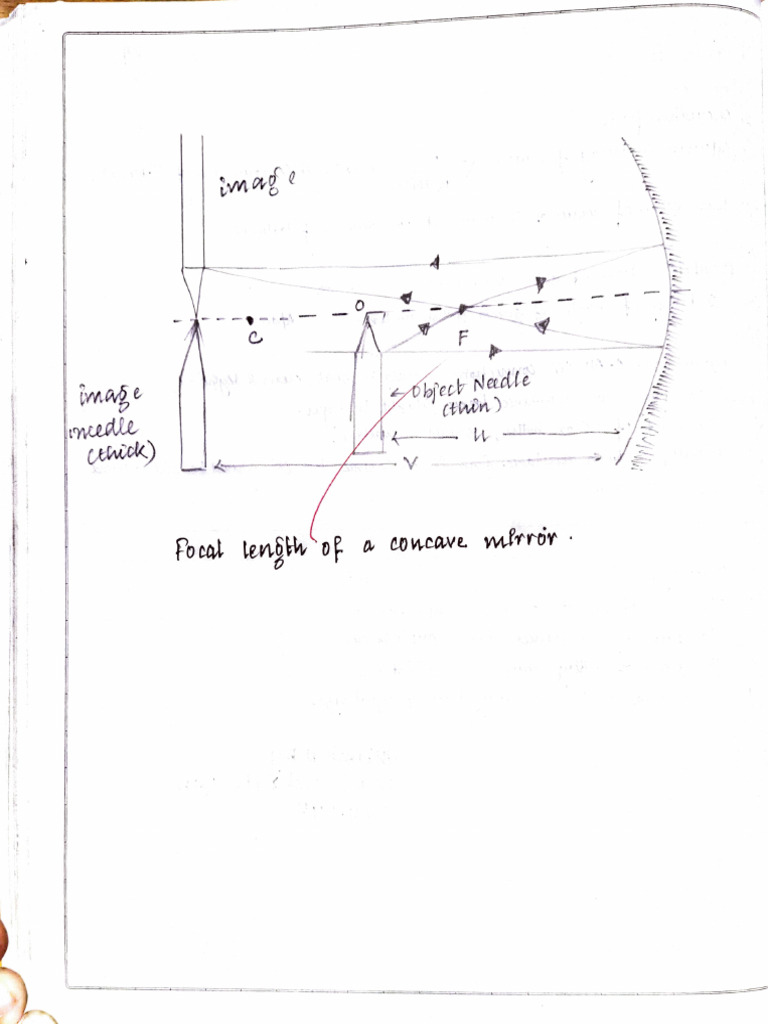 image
O
C
F
image
needle
(thick)
Object Needle
(thin)
u
V
Focal length of a concave mirror.